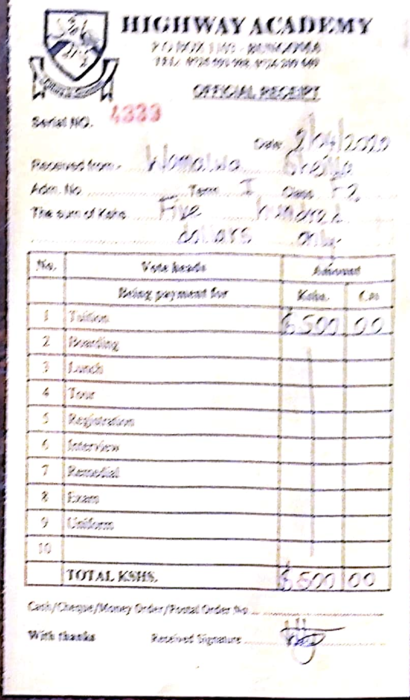 HIGHWAY ACADEMY
P.O BOX - BUNGOMA
OFFICIAL RECEIPT
Serial NO. 4333
Date
Received from:- Wamalwa
Adm. No Term I Class F2
The sum of Kshs Five hundred
dollars only
No. Vote heads Amount
Being payment for Kshs. Cts
1 Tuition $500 00
2 Boarding
3 Lunch
4 Tour
5 Registration
6 Interview
7 Remedial
8 Exam
9 Uniform
10
TOTAL KSHS. $500 00
Cash/Cheque/Money Order/Postal Order No
With thanks Received Signature